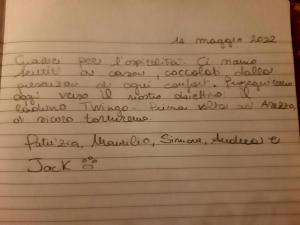 14 maggio 2022
Grazie per l'ospitalità. Ci siamo
sentiti a casa, coccolati dalla
presenza di ogni confort. Proseguiremo
oggi verso il nostro obiettivo il
raduno Twingo. Prima volta ad Arezzo,
di sicuro torneremo.
Patrizia, Maurilio, Simone, Andrea e
Jack